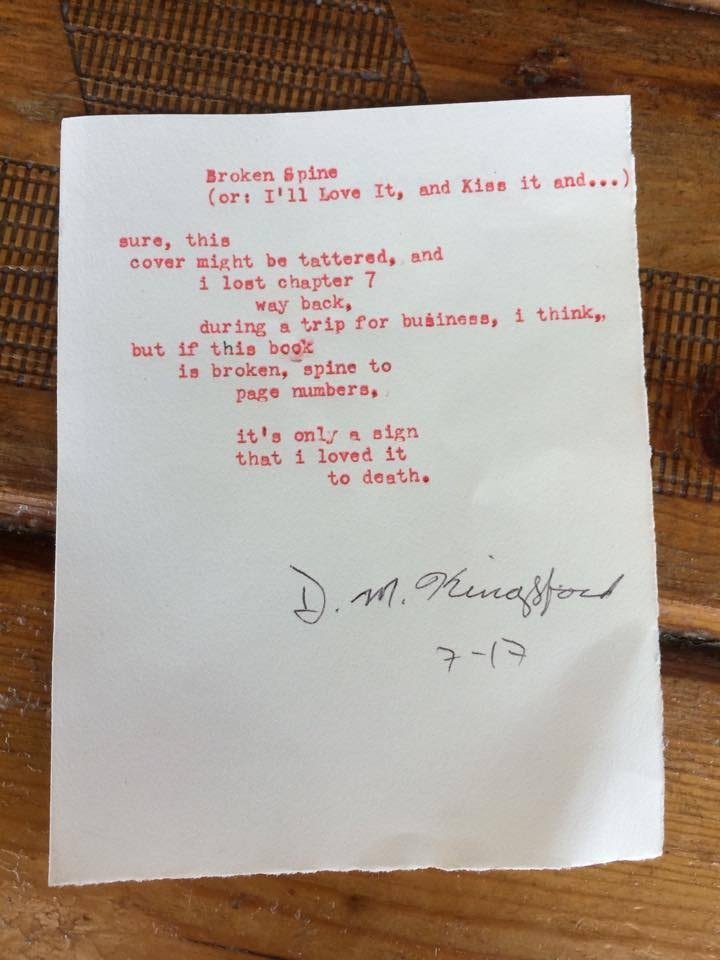 Broken Spine
(or: I'll Love It, and Kiss it and...)
sure, this
cover might be tattered, and
i lost chapter 7
way back,
during a trip for business, i think,,
but if this book
is broken, spine to
page numbers,
it's only a sign
that i loved it
to death.
D. M. Kingsford
7-17